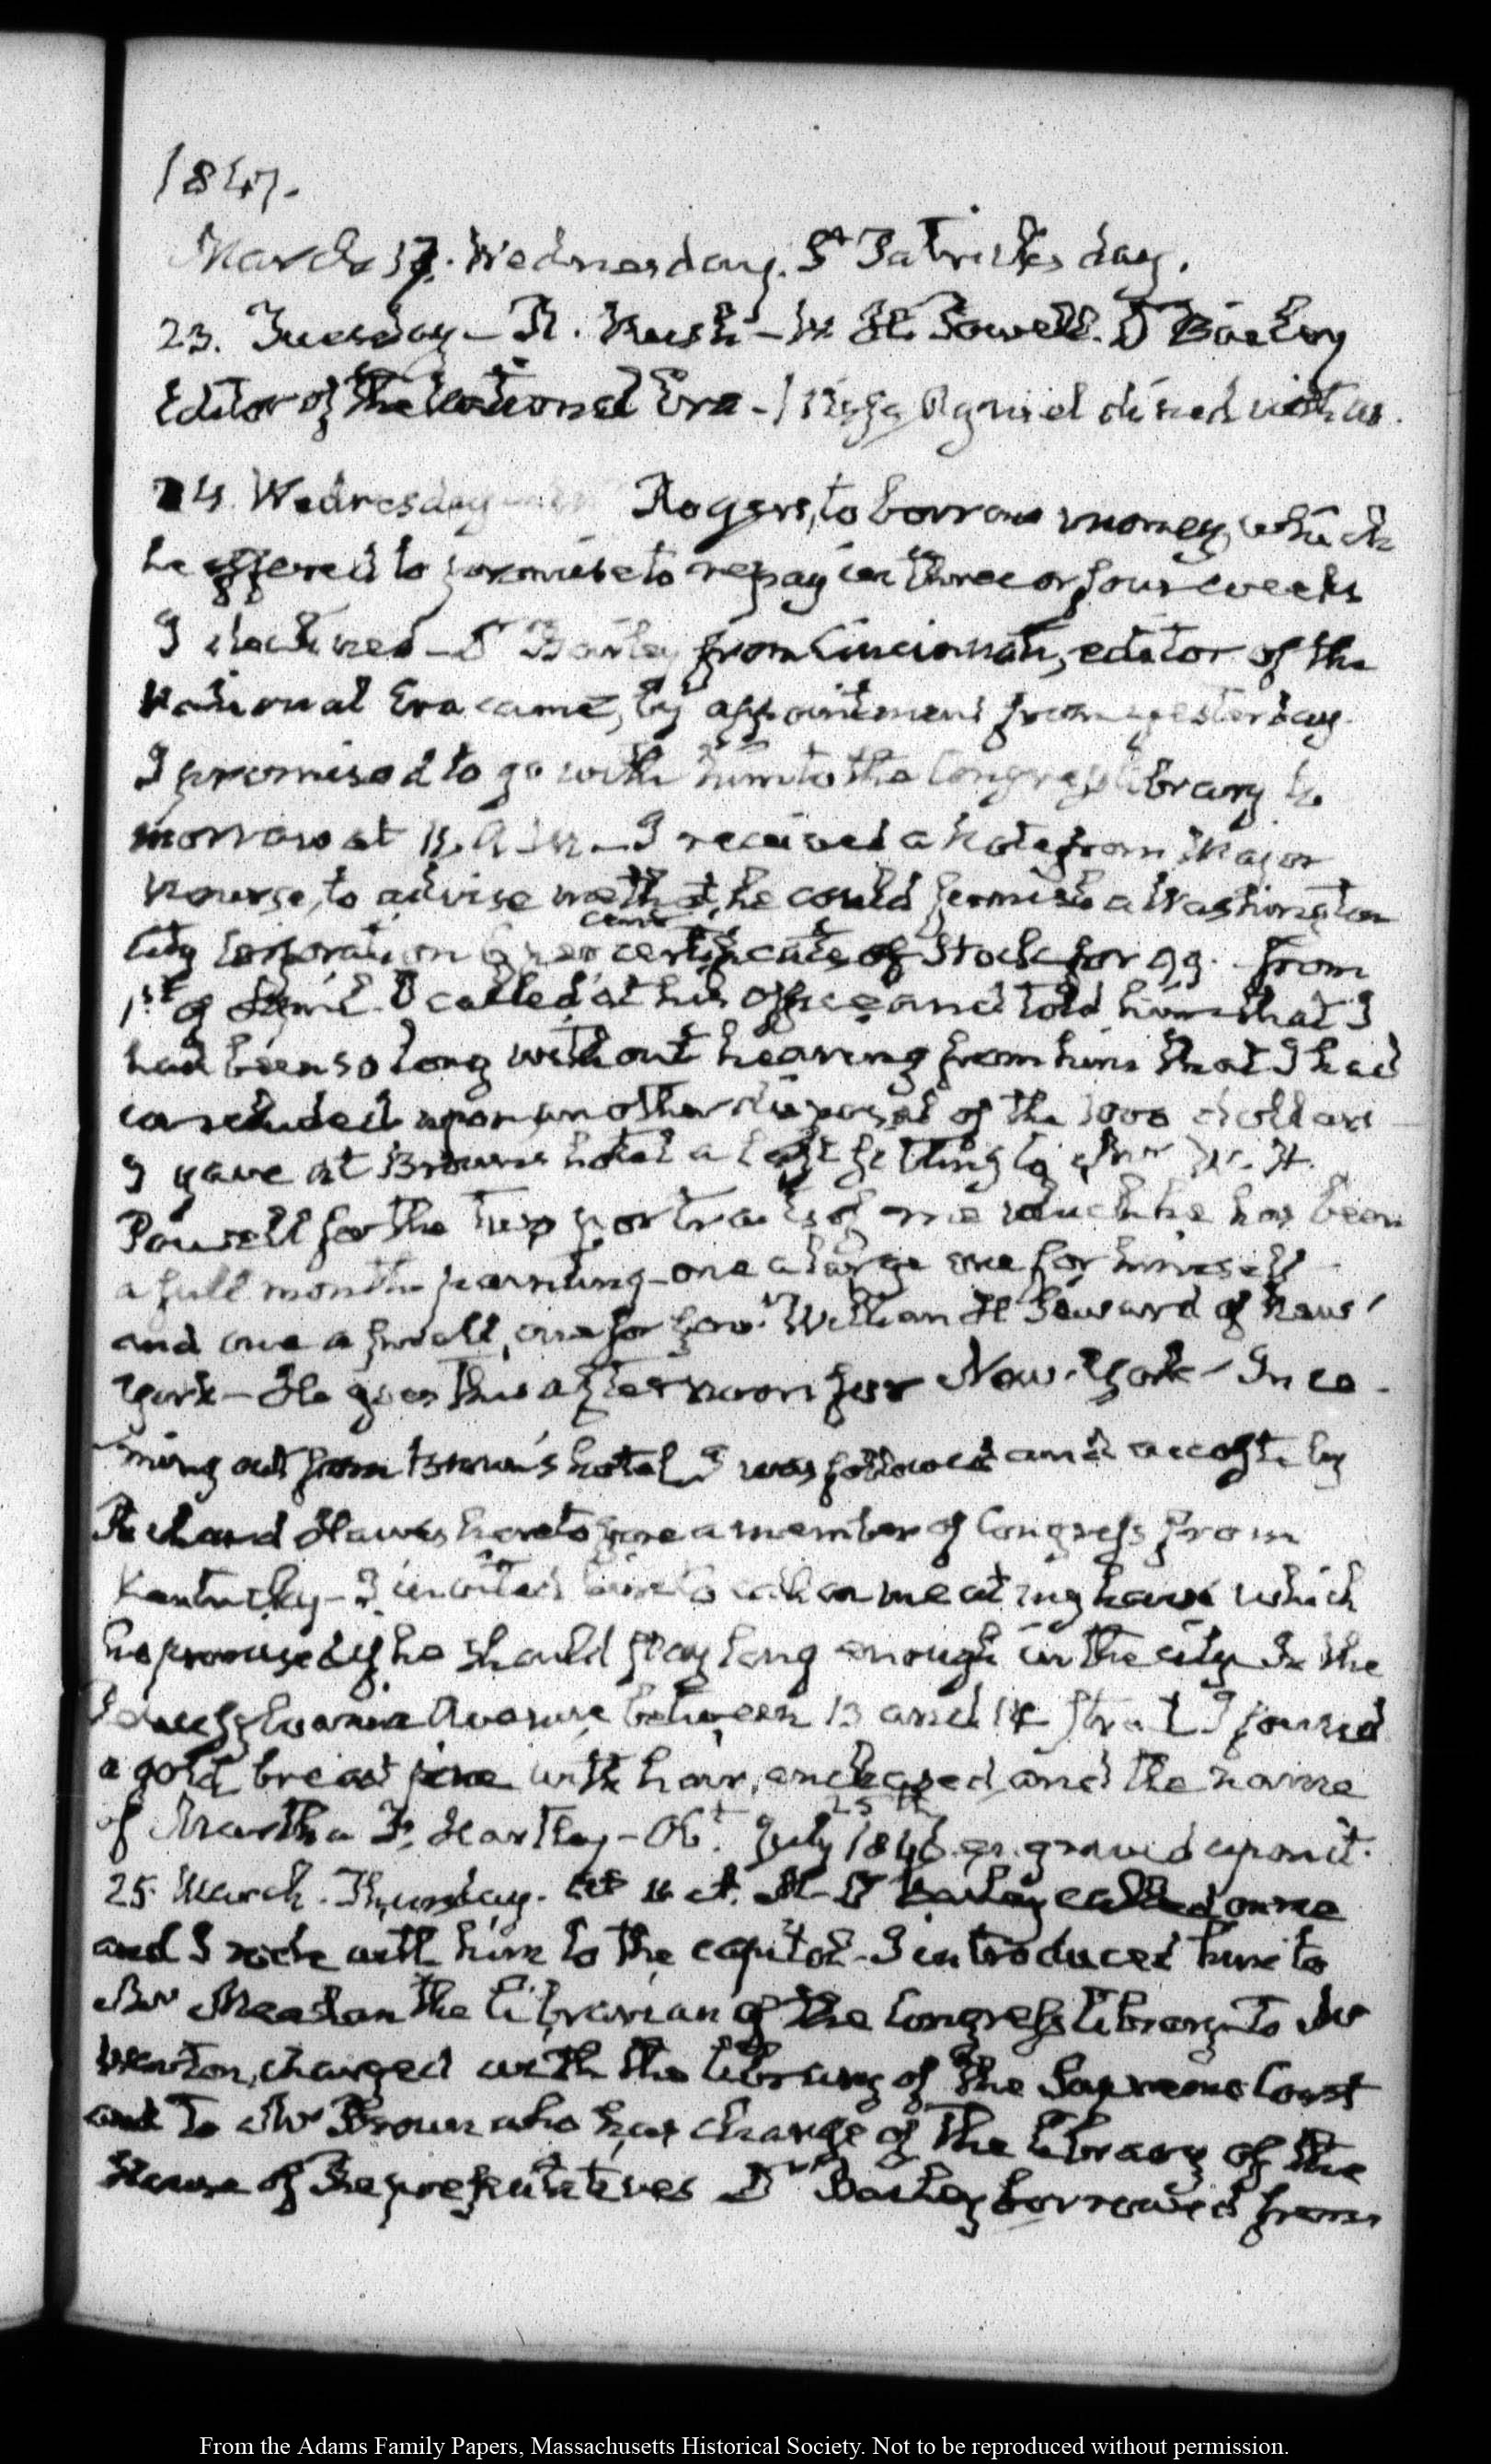 1847.
March 17. Wednesday. St Patricks day.
23. Tuesday — R. Rush — W. H. Powell. Dr Bailey
Editor of the National Era — dined with us.
24. Wednesday Rogers, to borrow money, which
he offered to promise to repay in three or four weeks
I declined — Dr Bailey from Cincinnati, editor of the
National Era came, by appointment from yesterday.
I promised to go with him to the Congress library to
morrow at 11. A.M. — I received a Note from Major
Nourse, to advise me that he could furnish a Washington
City Corporation 6 per cent certificate of Stock for 99. from
1st of April. I called at his Office and told him that I
had been so long without hearing from him that I had
concluded upon another disposal of the 1000 dollars —
I gave at Brown's hotel a last sitting to Mr W. H.
Powell for the two portraits of me which he has been
a full month painting — one a large one for himself —
and one a small, one for Govr. William H Seward of New
York — He goes this afternoon for New-York — In co-
ming out from Brown's hotel I was followed and accosted by
Richard Hawes heretofore a member of Congress from
Kentucky — I invited him to call on me at my house which
he promised if he should stay long enough in the city — In the
Pennsylvania Avenue between 13 and 14 street I found
a gold breast pin with hair, enchased and the name
of Martha F. Hartley — Obt. July 25th 1846 engraved upon it.
25 March. Thursday. At 11 A. M. Dr Bailey called on me
and I rode with him to the capitol — I introduced him to
Mr Meehan the librarian of the Congress library — To Mr
charged with the library of the Supreme Court
and to Mr Brown who has charge of the library of the
House of Representatives Dr Bailey borrowed from
From the Adams Family Papers, Massachusetts Historical Society. Not to be reproduced without permission.